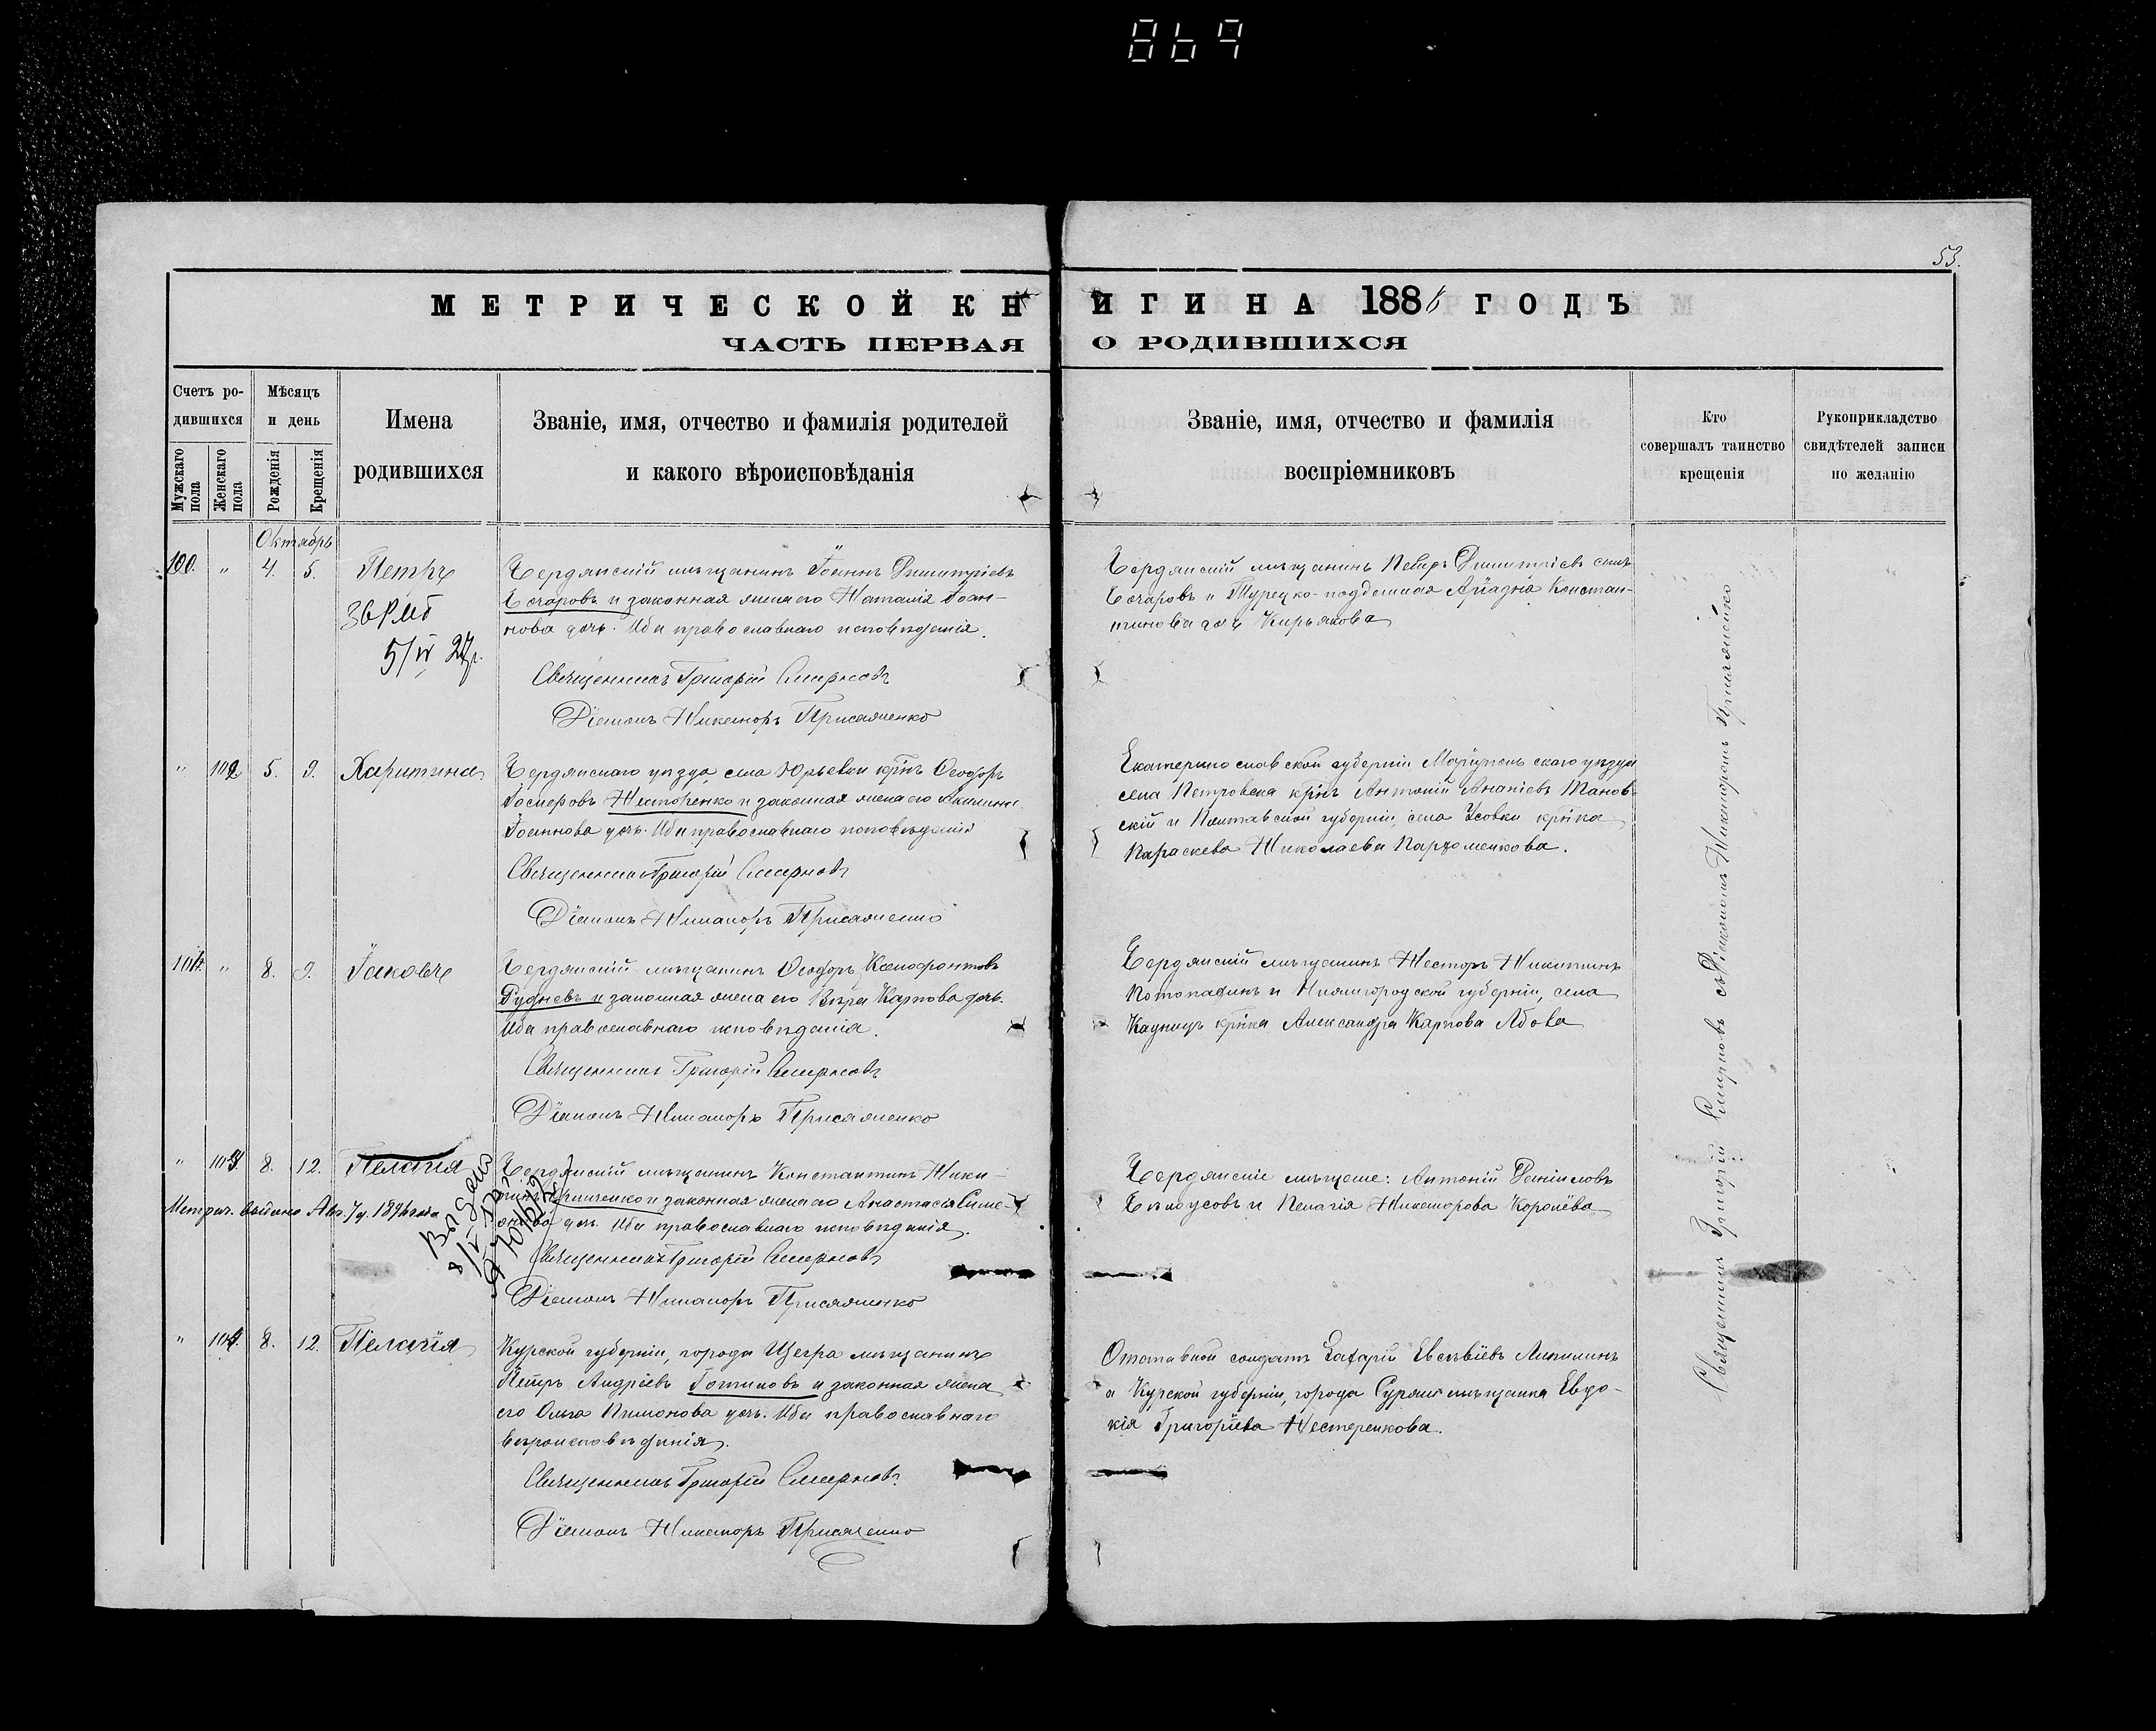 869
53.
МЕТРИЧЕСКОЙ КНИГИ НА 1886 ГОДЪ
ЧАСТЬ ПЕРВАЯ О РОДИВШИХСЯ
Счетъ ро-
дившихся
Мужскаго пола
Женскаго пола
Мѣсяцъ
и день
Рожденія
Крещенія
Имена
родившихся
Званіе, имя, отчество и фамилія родителей
и какого вѣроисповѣданія
Званіе, имя, отчество и фамилія
воспріемниковъ
Кто
совершалъ таинство
крещенія
Рукоприкладство
свидѣтелей записи
по желанію
Октябрь
100. " 4. 5. Петръ
5/IV 27г.
Бердянскій мѣщанинъ Іоаннъ Димитріевъ
Бочаровъ и законная жена его Наталія Іоан-
нова дочь. Оба православнаго исповѣданія.
Священникъ Григорій Смирновъ
Діаконъ Никаноръ Присяженко
Бердянскій мѣщанинъ Петръ Димитріевъ сынъ
Бочаровъ и Турецко-подданная Аріадна Констан-
тинова дочь Кирьякова
" 102. 5. 9. Харитина
Бердянскаго уѣзда села Юрьевки крнъ Ѳеодоръ
Іосифовъ Несторенко и законная жена его
Іоаннова дочь. Оба православнаго исповѣданія
Священникъ Григорій Смирновъ
Діаконъ Никаноръ Присяженко
Екатеринославской губерніи Маріупольскаго уѣзда
села Петровска крнъ Антоній Ананіевъ Танов-
скій и Полтавской губерніи, села Усовки крнка
Параскева Николаева Пархоменкова.
101. " 8. 9. Іаковъ
Бердянскій мѣщанинъ Ѳеодоръ Ксенофонтовъ
Рудневъ и законная жена его Вѣра Карпова дочь.
Оба православнаго исповѣданія.
Священникъ Григорій Смирновъ
Діаконъ Никаноръ Присяженко
Бердянскій мѣщанинъ Несторъ Никитинъ
и Нижегородской губерніи, села
крнка Александра Карпова
" 103. 8. 12. Пелагія
Метрич. выдана Авг. 7 д. 1896 года
Выдано
Бердянскій мѣщанинъ Константинъ Ники-
и законная жена его Анастасія Симе-
онова дочь. Оба православнаго исповѣданія.
Священникъ Григорій Смирновъ
Діаконъ Никаноръ Присяженко
Бердянскіе мѣщане: Антоній Даніиловъ
Бѣлоусовъ и Пелагія Никанорова Королёва
" 104. 8. 12. Пелагія
Курской губерніи, города Щегра мѣщанинъ
Петръ Андріевъ и законная жена
его Ольга Пимонова дочь. Оба православнаго
вѣроисповѣданія.
Священникъ Григорій Смирновъ.
Діаконъ Никаноръ Присяженко
Отставной солдатъ Захарій Евсѣвіевъ
и Курской губерніи, города мѣщанка Евдо-
кія Григоріева Нестеренкова.
Священникъ Григорій Смирновъ съ Діакономъ Никаноромъ Присяженко